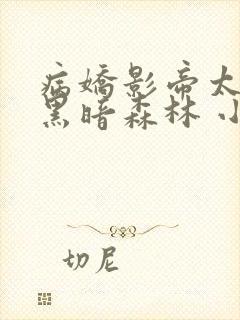 病嬌影帝太
黑暗森林 小
切尼